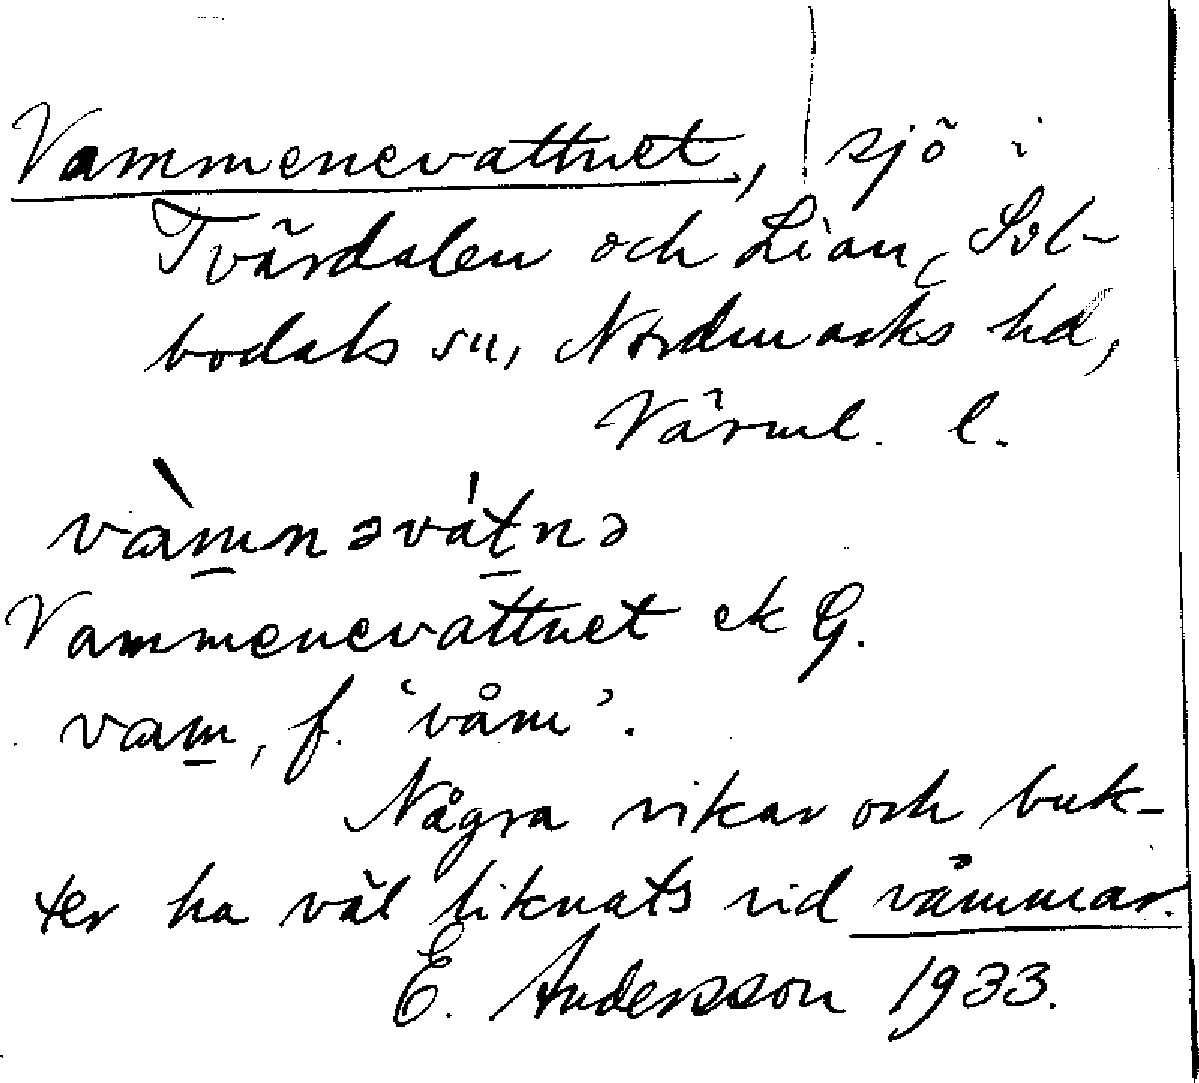 Vammenevattnet, sjö i
Tvärdalen och Lian, Söl-
bodals sn, Nordmarks hd,
Värml. l.
vàm̲nəvát̲nə
Vammenevattnet ek G.
vam̲, f. 'våm'.
Några vikar och buk-
ter ha väl liknats vid våmmar.
E. Andersson 1933.